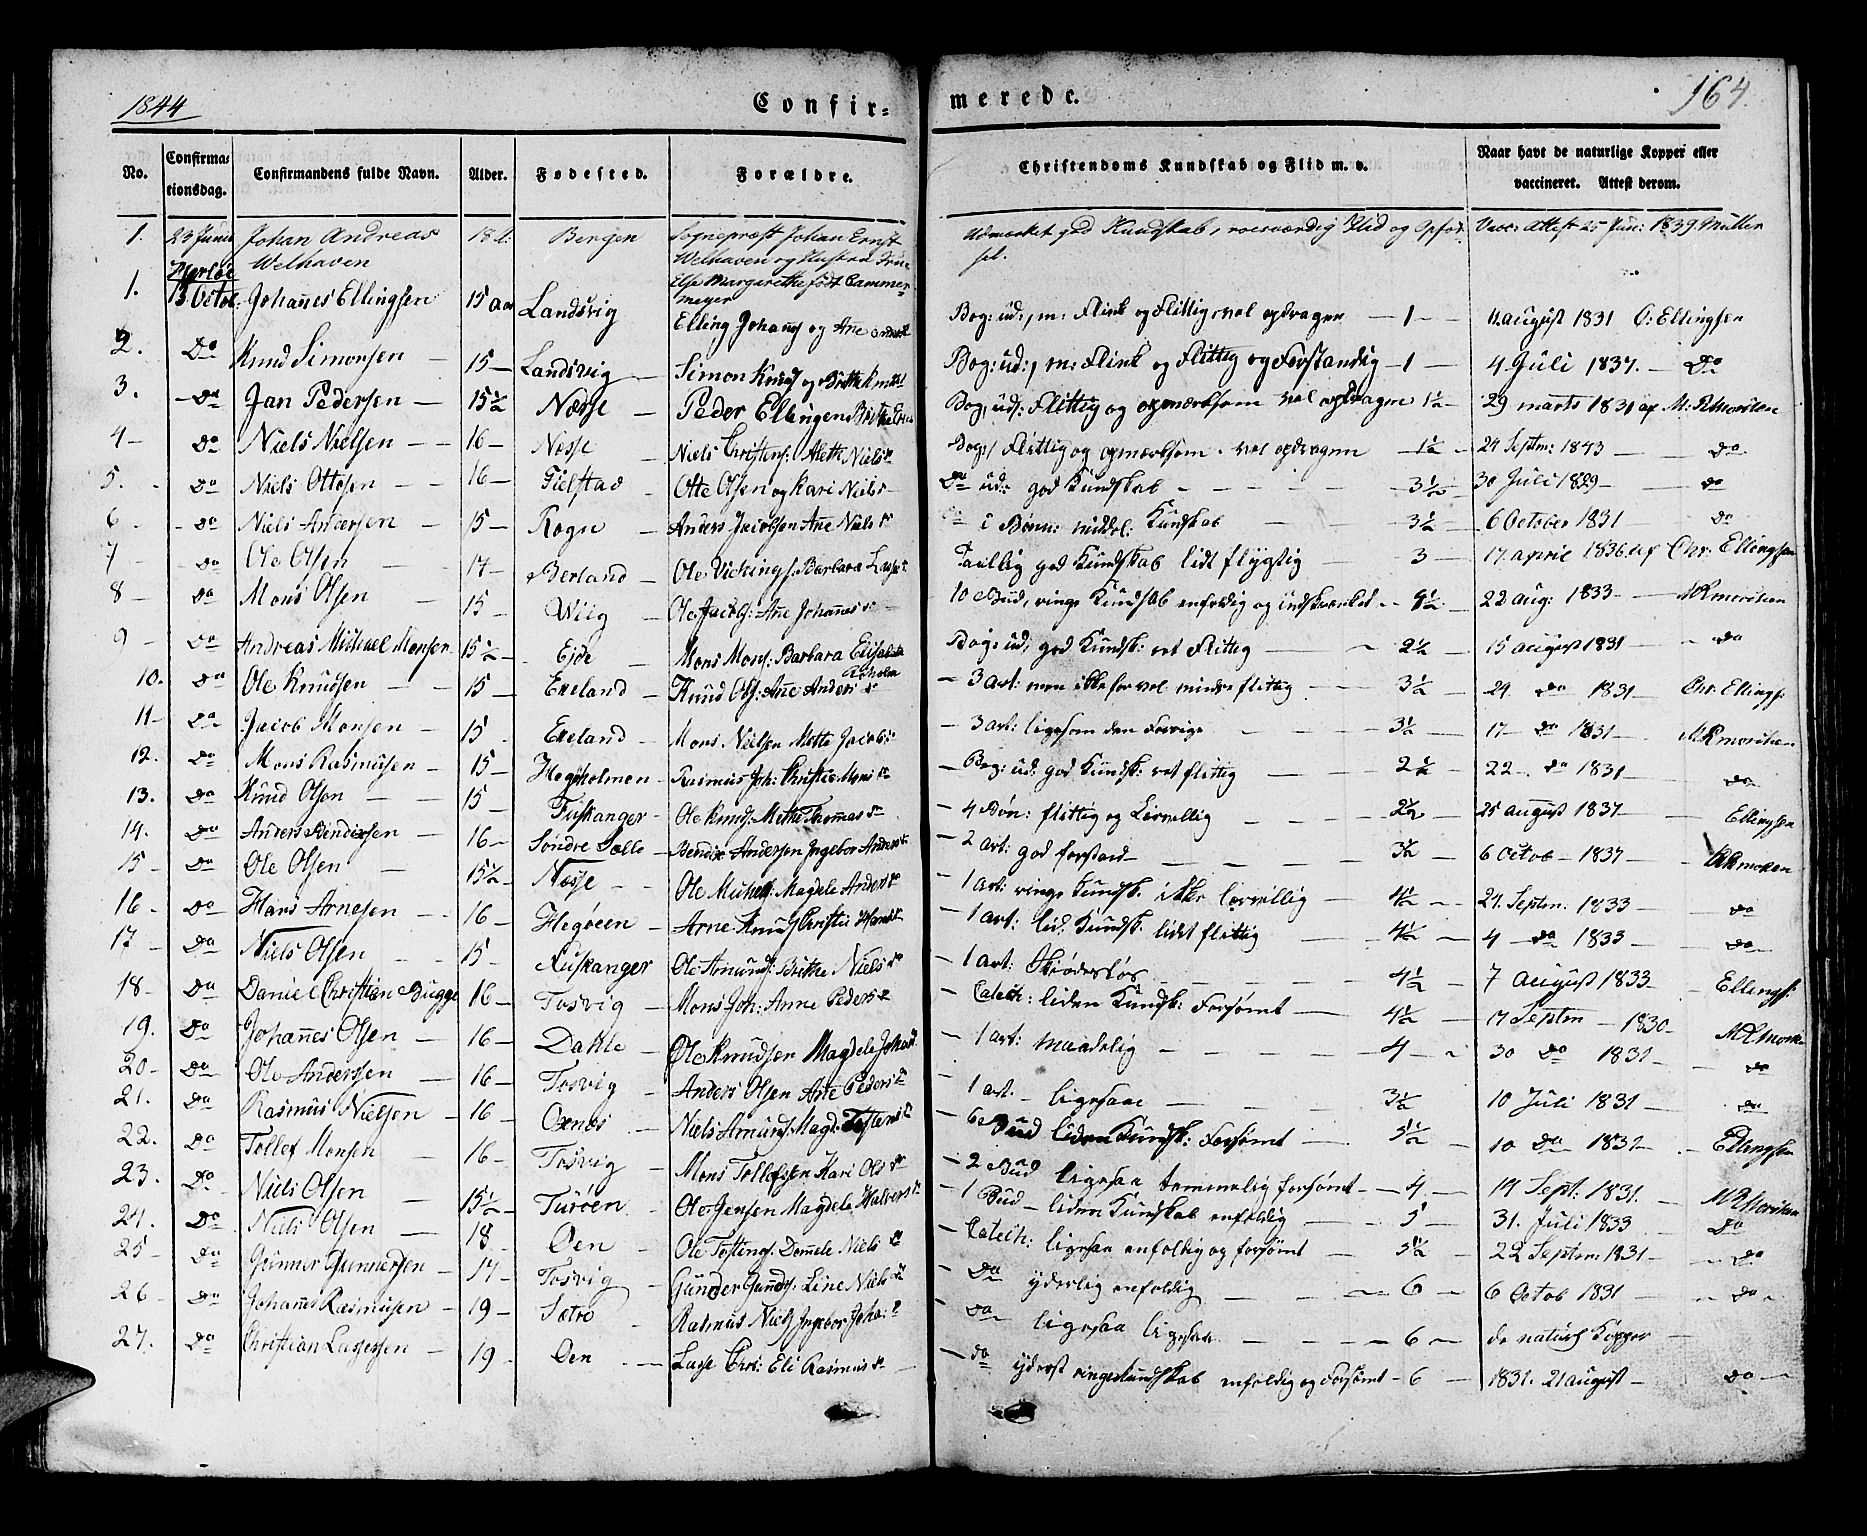 1844 Confir= merede. 164.
No. Confirma= tionsdag. Confirmandens fulde Navn. Alder. Fødested. Forældre. Christendoms Kundskab og Flid m. v. Naar havt de naturlige Kopper eller vaccineret. Attest derom.
1. 23 Juni Johan Andreas Welhaven Bergen Sognepræst Johan Ernst Welhaven og Hustru Else Margarethe født Cammermeyer Udmærket god Kundskab, roesværdig Flid og Opførsel. Vacc: Attest 25 Jun: 1839. Müller
Herløe
1. 13 Octob: Johannes Ellingsen 15 aar Landsvig Elling Johans og Ane Bog: ud:, m: Flink og Flittig vel opdragen — 1 — 11 august 1831 O: Ellingsen
2. Do Knud Simonsen — 15 — Landsvig — Simon Knuds og Brithe Bog: ud:, m: Flink og Flittig og Forstandig — 1 — 4 Juli 1837. — Do
3. — Do Jan Pedersen — 15½ Næsse — Peder Ellingsen Brithe Bog, ud: Flittig og opmærksom vel opdragen 1½ — 29 marts 1831 af M: R Morsten
4 — Do Niels Nielsen — — 16 — Næsse — Niels Christens: Alethe Niels dr Bog:, Flittig og opmærksom. vel opdragen 1½ — 24 Septm: 1843 — Do
5. - Do Niels Ottesen — — 16 — Fielstad — Otte Olsen og Kari Niels — Do ud: god Kundskab - - - - 3½ — 30 Juli 1829 — Do
6 - - Do Niels Andersen — 15 — Rogn — Anders Jacobsen Ane Niels dr i Bønn: middel: Kundskab — 3½ — 6 October 1831 — Do
7 - Do Ole Olsen — — 17 — Berland — Ole Vickings: Barbara Lasse Taalelig god Kundskab lidt flygtig — 3 — 17. april 1836 af Chr: Ellingsen
8 — Do Mons Olsen — 15 — Wiig — Ole Jacobs: Ane Johannes dr 10 Bud, ringe Kundskab enfoldig og indskrænket - 4½ - 22 aug: 1833 — MR Morsten
9 - Do Andreas Michael Monsen 15½ — Eide — Mons Mons: Barbara Elisabeth Bog: ud: god Kundsk: ret Flittig — 2½ — 15 august 1831 - Do
10. - Do Ole Knudsen — — 15 — Ekeland — Knud Ols: Ane Anders dr — 3 art: men ikke for vel mindre flittig — 3½ — 24 Do 1831 Chr. Ellings:
11 - Do Jacob Monsen — 15 - Ekeland — Mons Nielsen Mette Jacobs — 3 art: ligesom den Forrige — 3½ — 17 — Do 1831 — MR Morsten
12. Do Mons Rasmusen — 15 — Hegholmen — Rasmus Joh: Christie Mons dr — Bog: ud: god Kundsk: ret flittig — 2½ — 22 — Do 1831 — Do
13. Do Knud Olsen — — 15 — Fuskanger — Ole Knuds: Mette Thomas dr — 4 Bøn: flittig og Lærvillig — 2½ — 25 august 1837 — Ellingsen
14. Do Anders Bendixsen — 16 — Søndre — Bendix Andersen Ingebor Anders dr — 2 art: god forstand — 3½ — 6 Octob — 1837 —
15 — Do Ole Olsen — 15½ — Næsse — — Ole Michels: Magdele Anders dr — 1 art: ringe Kundsk: ikke lærvillig — 4½ - 24. Septm: 1833 — Do
16 - Do Hans Arnesen — — 16 — Hegøeen — Arne Knuds Christie Hans dr — 1 art: lid. Kundsk. lidet flittig — 4½ — 4 — Do 1833 — Do
17 — Do Niels Olsen — — 15 — Fuskanger Ole Amunds: Brithe Niels dr — 1 art: Skiødesløs — 4½ — 7 august 1833 — Ellings:
18 — Do Daniel Christian Bugge 16 — Tosvig — Mons Joh: Anne Peders dr — Catech: liden Kundsk: Forsømt — 4½ — 17 Septm — 1830 —
19. Do Johannes Olsen — 16 — Dahle — Ole Knudsen Magdele Johans — 1 art: maadelig — 4 — 30 Do 1831 — Do
20 — Do Ole Andersen — 16 — Tosvig — Anders Olsen Ane Peders dr — 1 art. — ligesaa — 3½ 10 Juli 1831 — Do
21. Do Rasmus Nielsen — 16 — Oxnes — Niels Amunds: Magd: Tostens dr — 6 Bud liden Kundsk: Forsømt — 5½ — 10 Do 1831 — Ellingsen
22. Do Tollef Monsen — 16 — Tosvig — Mons Tollefsen Kari Ols dr — 2 Bud ligesaa temmelig forsømt — 4 — 19 Sept: 1831. — MR Morsten
23. Do Niels Olsen — 15½ — Turøen — Ole Jensen Magdele Halvors dr — 1 Bud — liden Kundskab enfoldig — 5 — 31. Juli 1833 — Do
24. Do Niels Olsen — 18 — Øen — Ole Tostens: Niels dr — Catech: ligesaa enfoldig og forsømt — 5½ — 22 Septm: 1831 — Do
25 — Do Gunner Gunnersen — 17 — Tosvig — Gunder Gunds: Line Niels dr — Do yderlig enfoldig — 6 — 6 Octob 1831 — Do
26 — Do Johannes Rasmusen — 19 — Sætrø — Rasmus Niels Ingebor Joha: — Do ligesaa ligesaa — 6 — de naturl: Kopper —
27. Do Christian Lassesen — 19 — Øen — Lasse Chri: Eli Rasmus dr — Do yderst ringe Kundskab enfoldig og Forsømt — 6 — 1831. 21 august — Do